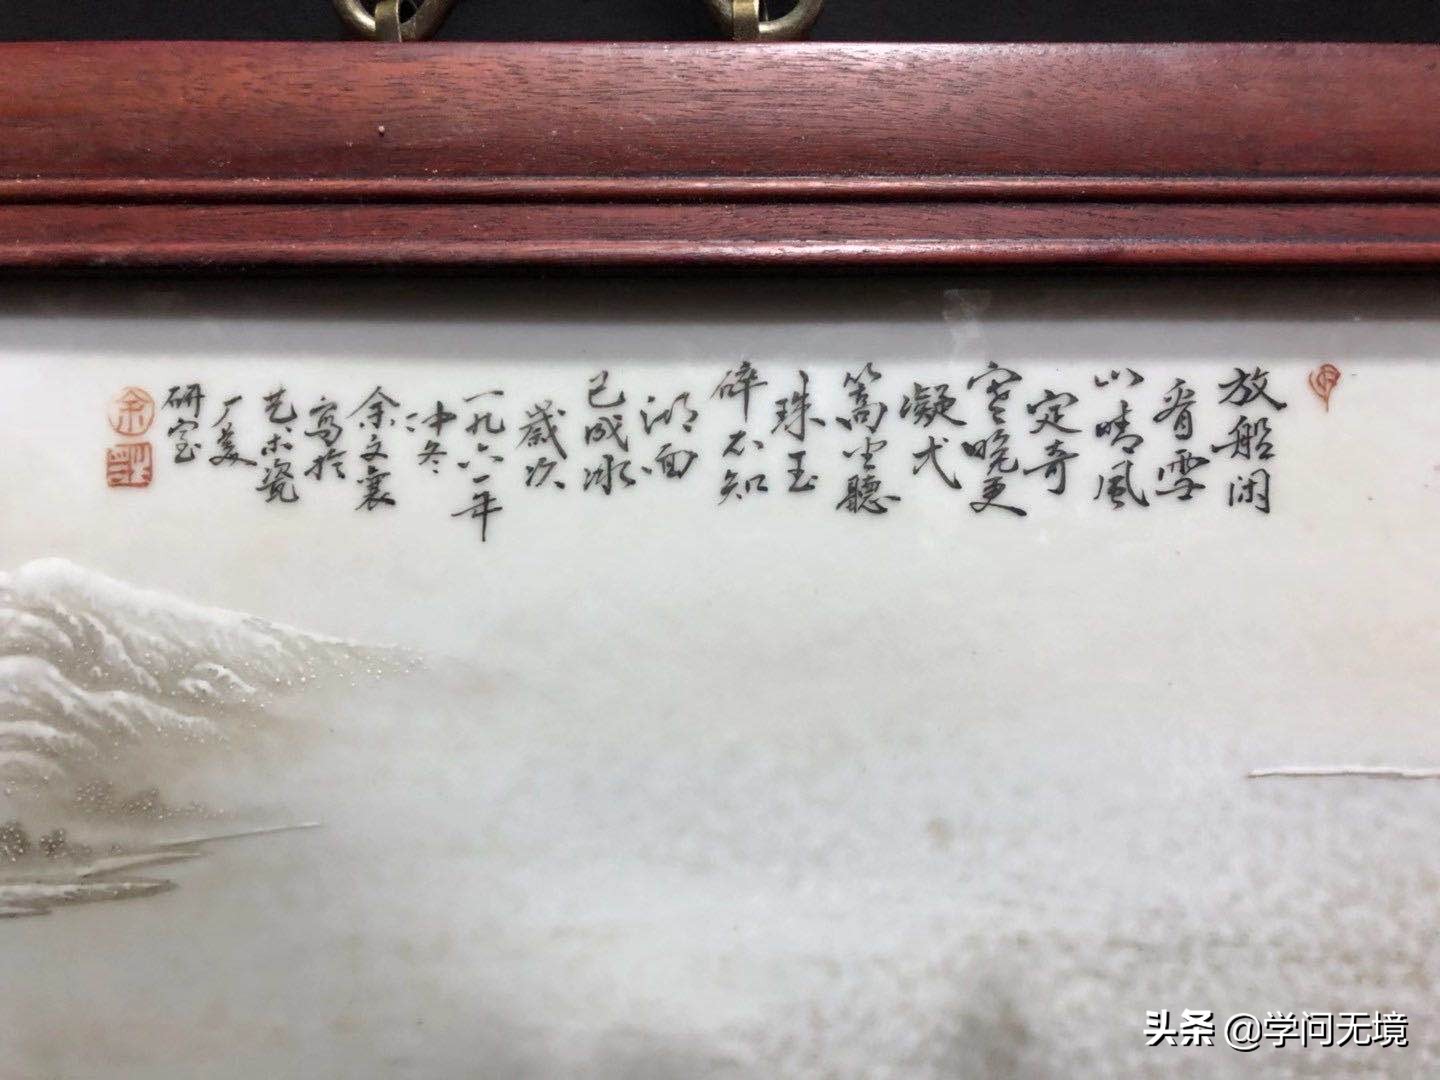 放船闲
看雪
山晴風
定奇
寒晚更
凝
篙坐聽
珠玉
碎不知
湖面
已成冰
歲次
一九六一年
仲冬
余文襄
寫於
艺术瓷
厂美
研室
余
头条 @学问无境